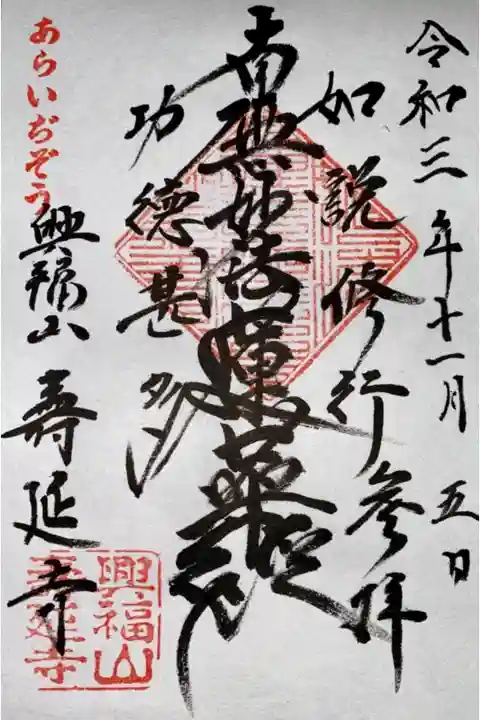 令和三年十一月五日
参拝
如説修行
南無妙法蓮華経
功徳甚多
あらいぢぞう
興福山 寿延寺
興福山
寿延寺